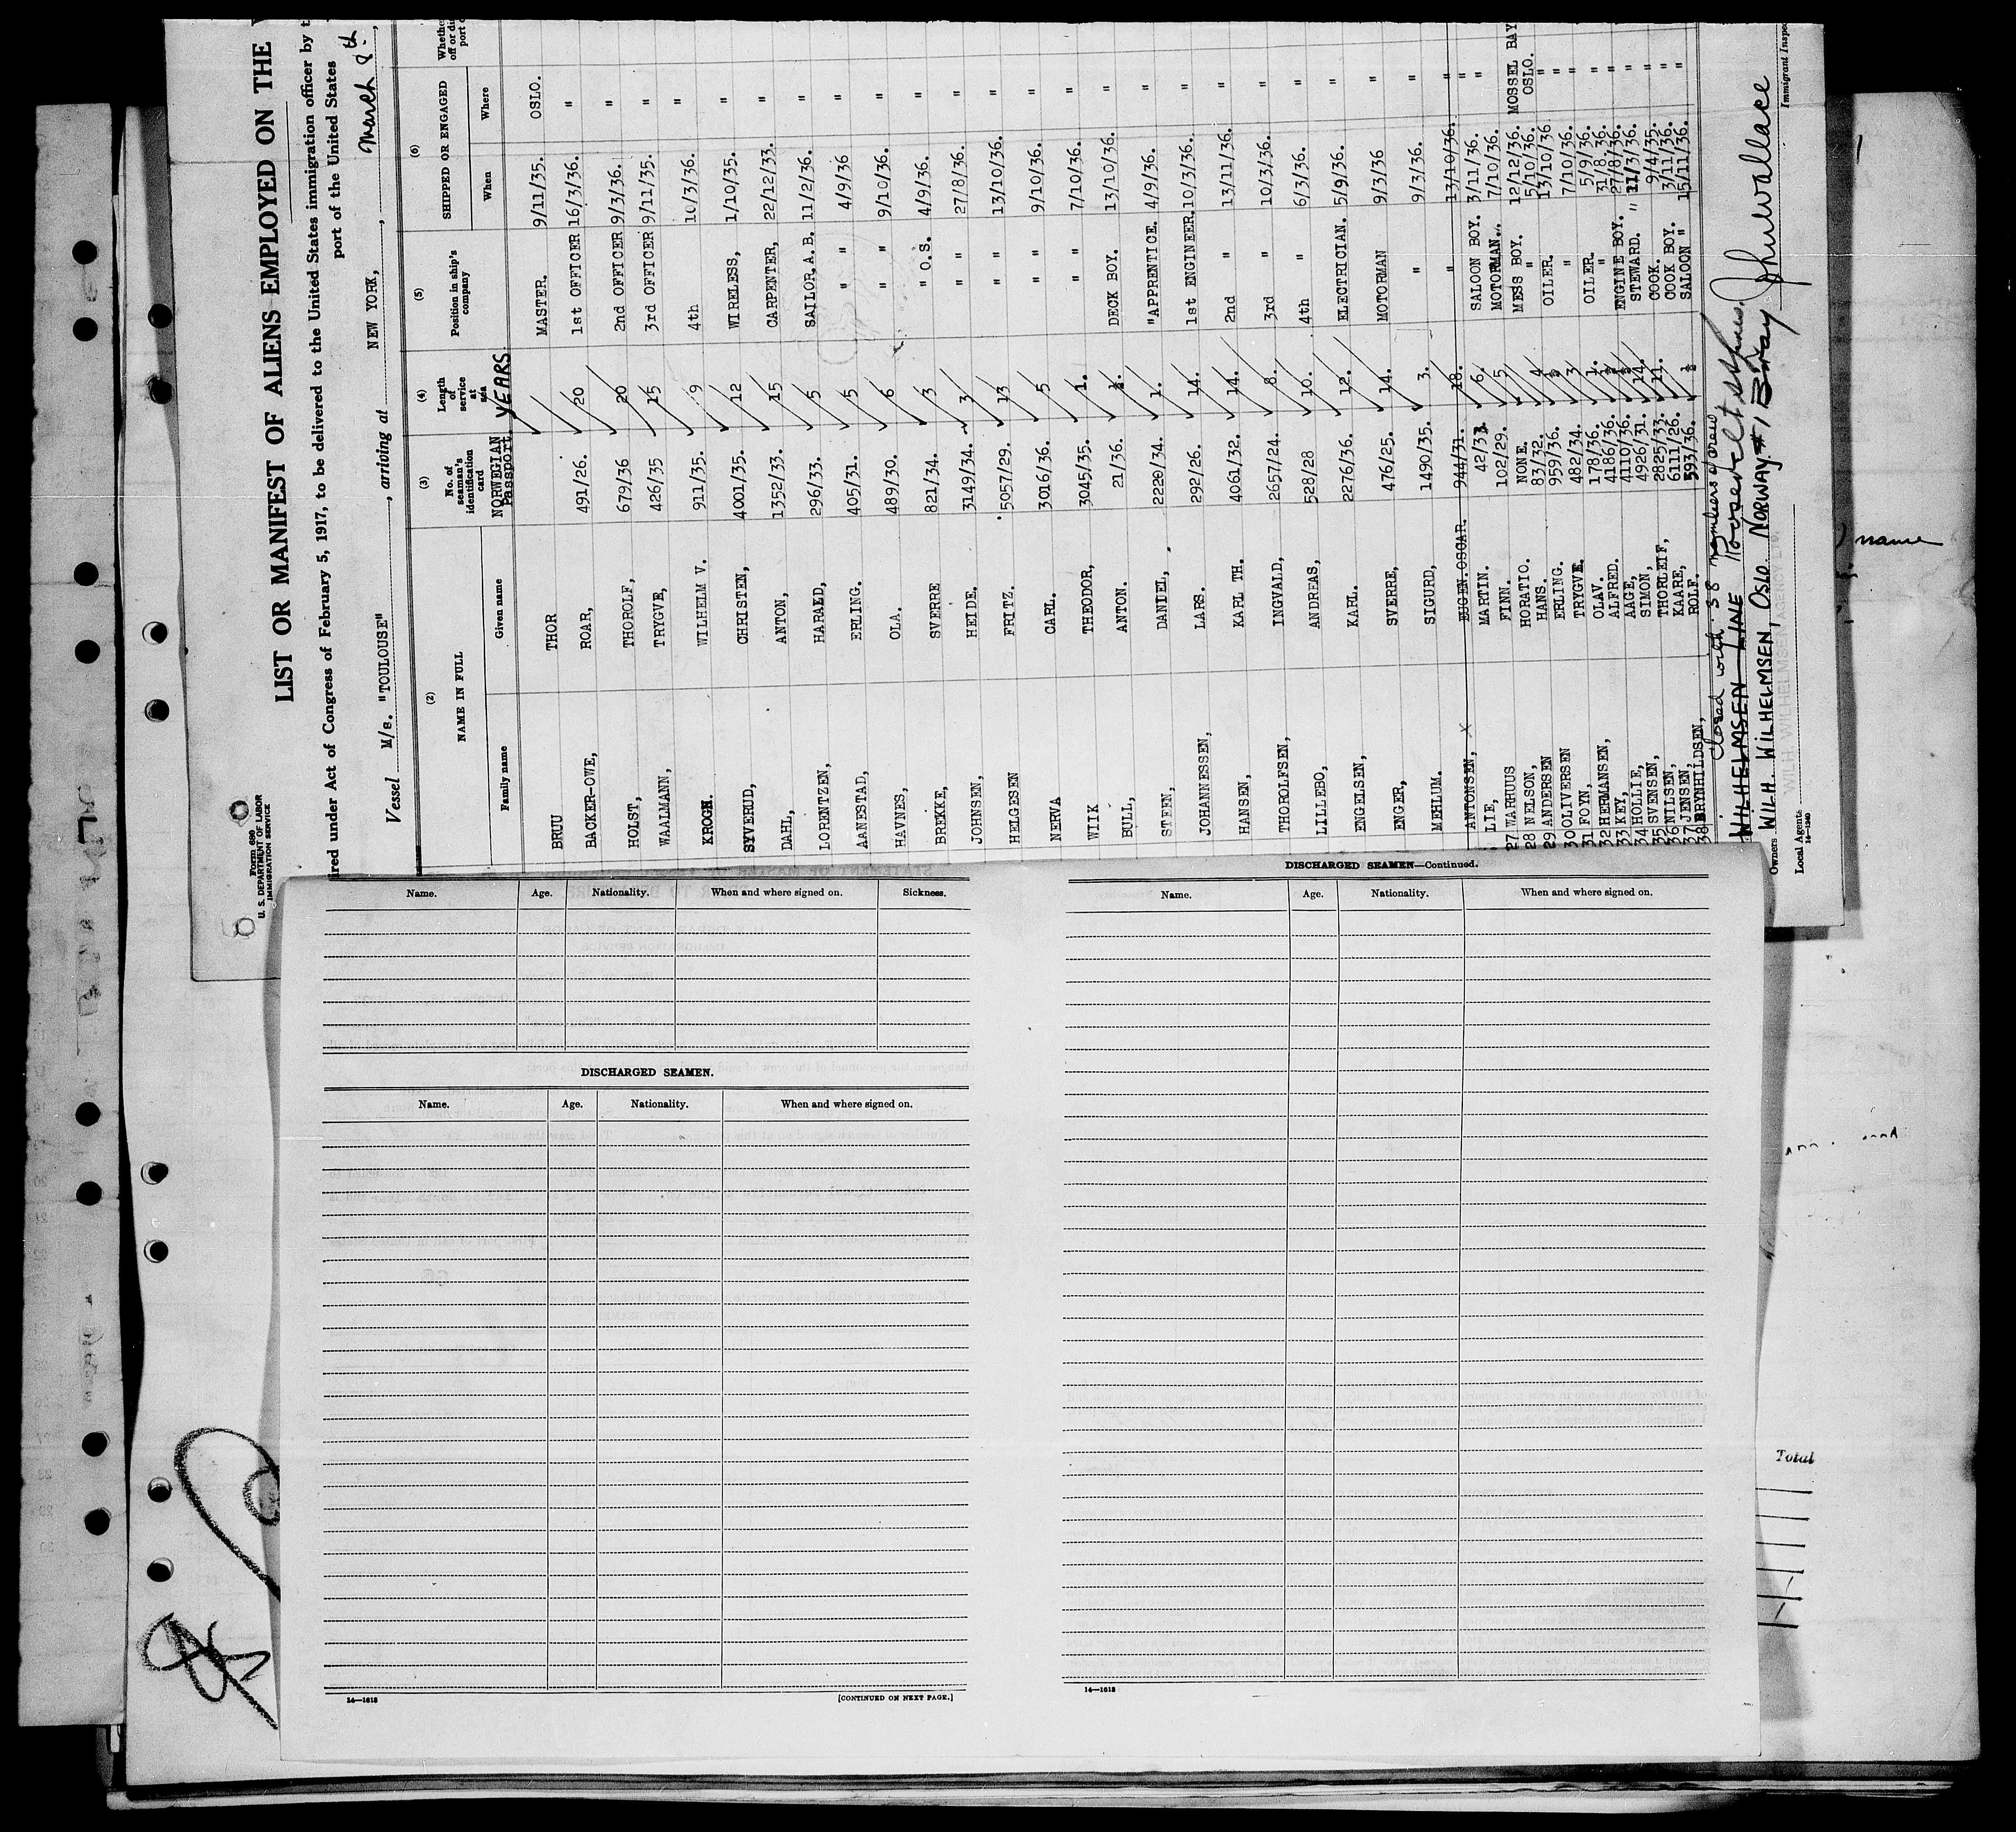 Form 680
U. S. DEPARTMENT OF LABOR
IMMIGRATION SERVICE
LIST OR MANIFEST OF ALIENS EMPLOYED ON THE
ired under Act of Congress of February 5, 1917, to be delivered to the United States immigration officer by t
port of the United States
Vessel M/s. "TOULOUSE", arriving at NEW YORK, March 8th,
(2) (3) (4) (5) (6)
NAME IN FULL No. of seaman's identification card Length of service at sea Position in ship's company SHIPPED OR ENGAGED
Family name Given name NORWEGIAN Passport. YEARS. When Where
BRUU THOR MASTER. 9/11/35. OSLO.
BACKER-OWE, ROAR, 491/26. 20 1st OFFICER 16/3/36. "
HOLST, THOROLF, 679/36 20 2nd OFFICER 9/3/36. "
WAALMANN, TRYGVE, 426/35 15 3rd OFFICER 9/11/35. "
KROGH. WILHELM V. 911/35. 9 4th 10/3/36. "
SYVERUD, CHRISTEN, 4001/35. 12 WIRELESS, 1/10/35. "
DAHL, ANTON, 1352/33. 15 CARPENTER, 22/12/33. "
LORENTZEN, HARALD, 296/33. 5 SAILOR. A.B. 11/2/36. "
AANESTAD, ERLING. 405/31. 5 " " 4/9/36 "
HAVNES, OLA. 489/30. 6 " " 9/10/36. "
BREKKE, SVERRE 821/34. 3 " O.S. 4/9/36. "
JOHNSEN, HEIDE. 3149/34. 3 " " 27/8/36. "
HELGESEN FRITZ. 5057/29. 13 " " 13/10/36. "
NERVA CARL. 3016/36. 5 " " 9/10/36. "
WIIK THEODOR, 3045/35. 1. " " 7/10/36. "
BULL, ANTON. 21/36. DECK BOY. 13/10/36. "
STEEN, DANIEL, 2220/34. 1. "APPRENTICE. 4/9/36. "
JOHANNESSEN, LARS. 292/26. 14. 1st ENGINEER. 10/3/36. "
HANSEN, KARL TH. 4061/32. 14. 2nd " 13/11/36. "
THOROLFSEN, INGVALD, 2657/24. 8. 3rd " 10/3/36. "
LILLEBO, ANDREAS, 528/28 10. 4th " 6/3/36. "
ENGELSEN, KARL. 2276/36. 12. ELECTRICIAN. 5/9/36. "
ENGER, SVERRE, 476/25. 14. MOTORMAN 9/3/36 "
MEHLUM. SIGURD, 1490/35. 3. " 9/3/36. "
ANTONSEN, X EUGEN. OSCAR. 944/31. 18. " 13/10/36. "
LIE, MARTIN. 42/33. 6. SALOON BOY. 3/11/36. "
27 WARHUUS FINN. 102/29. 5. MOTORMAN.. 7/10/36. "
28 NELSON, HORATIO. NONE. MESS BOY. 12/12/36. MOSSEL BAY
29 ANDERSEN HANS. 83/32. 4 " 5/10/36. OSLO.
30 OLIVERSEN ERLING. 959/36. OILER. 13/10/36 "
31 FOYN, TRYGVE. 482/34. 3 " 7/10/36. "
32 HERMANSEN, OLAV. 178/36. 1. OILER. 5/9/36. "
33 KEY, ALFRED. 4186/36. " 31/8/36. "
34 HOLLIE, AAGE, 4110/36. ENGINE BOY. 27/8/36. "
35 SVENSEN, SIMON, 4926/31. 14. STEWARD. " 11/3/36. "
36 NILSEN, THORLEIF, 2825/33. 11. COOK. 9/4/35. "
37 JENSEN, KAARE, 6111/26. COOK BOY. 3/11/36. "
38 BRYNHILDSEN, ROLF. 593/36. SALOON " 15/11/36. "
Closed with 38 members of crew
WILHELMSEN LINE Roosevelt
Owners WILH. WILHELMSEN, OSLO NORWAY. #1 Bway John Wallace
Local Agents WILH. WILHELMSEN AGENCY
Immigrant Inspec
14—1240
name
Total
Name. Age. Nationality. When and where signed on. Sickness.
DISCHARGED SEAMEN.
Name. Age. Nationality. When and where signed on.
14—1618 [CONTINUED ON NEXT PAGE.]
DISCHARGED SEAMEN—Continued.
Name. Age. Nationality. When and where signed on.
14—1618